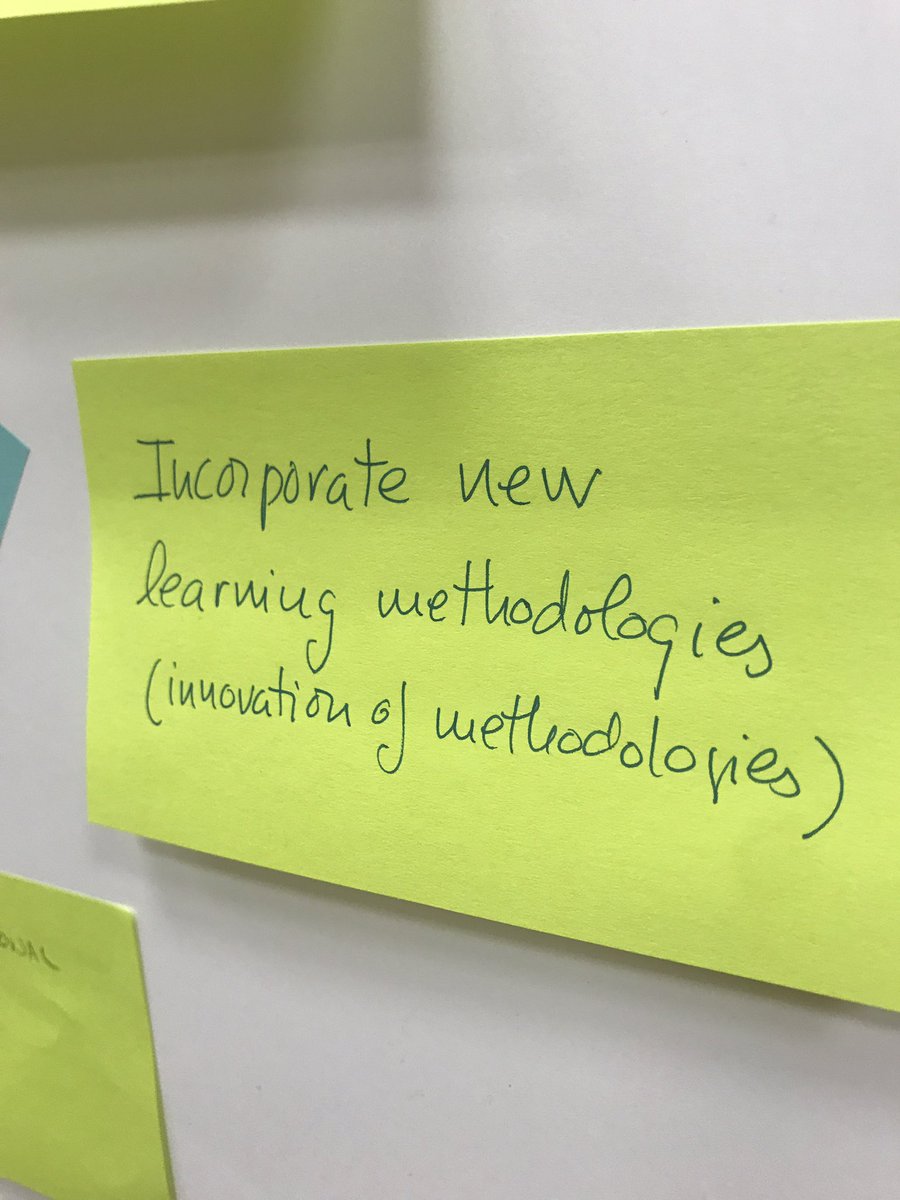 Incorporate new
learning methodologies
(innovation of methodologies)